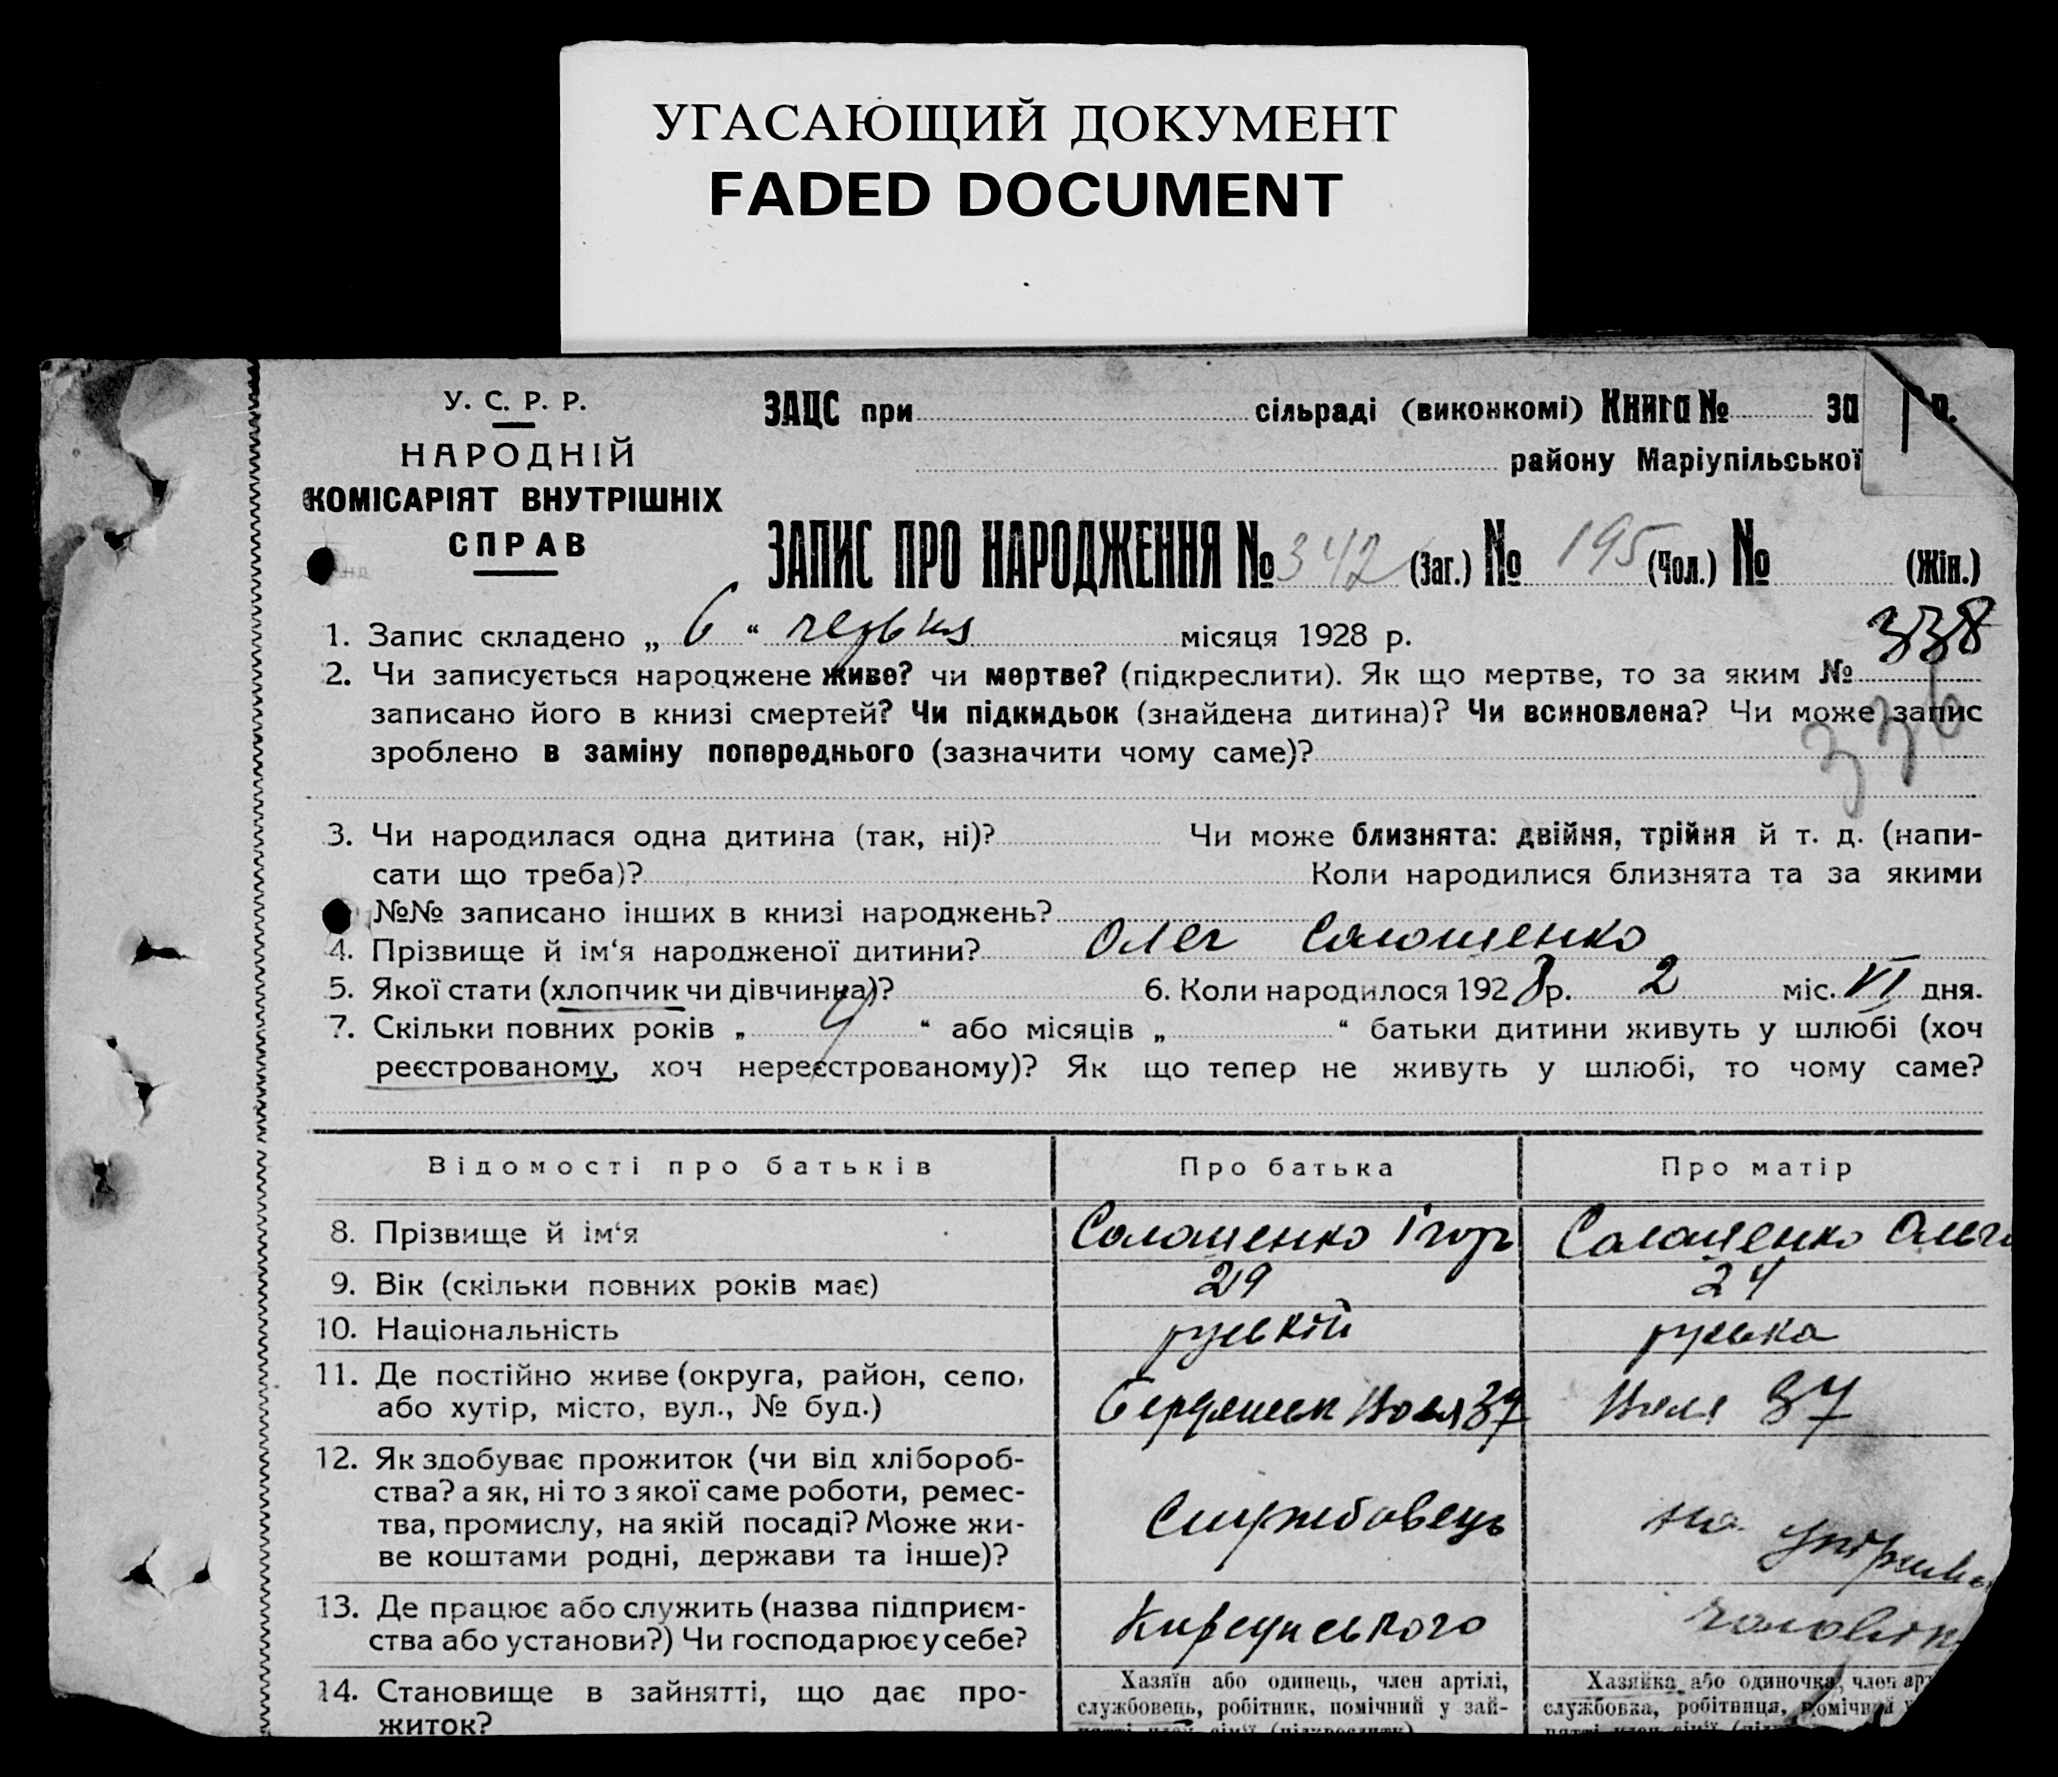 УГАСАЮЩИЙ ДОКУМЕНТ
FADED DOCUMENT
У. С. Р. Р.
НАРОДНІЙ
КОМІСАРІЯТ ВНУТРІШНІХ
СПРАВ
ЗАЦС при сільраді (виконкомі) Книга № за р.
району Маріупільської
ЗАПИС ПРО НАРОДЖЕННЯ № 342 (Заг.) № 195 (Чол.) № (Жін.)
338
1. Запис складено „ 6 “ червня місяця 1928 р.
2. Чи записується народжене живе? чи мертве? (підкреслити). Як що мертве, то за яким №
записано його в книзі смертей? Чи підкидьок (знайдена дитина)? Чи всиновлена? Чи може запис
зроблено в заміну попереднього (зазначити чому саме)? 336
3. Чи народилася одна дитина (так, ні)? Чи може близнята: двійня, трійня й т. д. (напи-
сати що треба)? Коли народилися близнята та за якими
№№ записано інших в книзі народжень?
4. Прізвище й ім‘я народженої дитини? Олег Солошенко
5. Якої стати (хлопчик чи дівчинка)? 6. Коли народилося 1928 р. 2 міс. VI дня.
7. Скільки повних років „ “ або місяців „ “ батьки дитини живуть у шлюбі (хоч
реєстрованому, хоч нереєстрованому)? Як що тепер не живуть у шлюбі, то чому саме?
Відомості про батьків Про батька Про матір
8. Прізвище й ім‘я Солошенко Ігорь Солошенко Ольга
9. Вік (скільки повних років має) 29 24
10. Національність руській руська
11. Де постійно живе (округа, район, село,
або хутір, місто, вул., № буд.) 37 37
12. Як здобуває прожиток (чи від хлібороб-
ства? а як, ні то з якої саме роботи, ремес-
тва, промислу, на якій посаді? Може жи- Службовець на
ве коштами родні, держави та інше)?
13. Де працює або служить (назва підприєм-
ства або установи?) Чи господарює у себе?
14. Становище в зайнятті, що дає про-
житок?
Хазяїн або одинець, член артілі,
службовець, робітник, помічний у зай-
нятті член сім‘ї (підкреслити)
Хазяйка або одиночка, член
службовка, робітниця, помічний